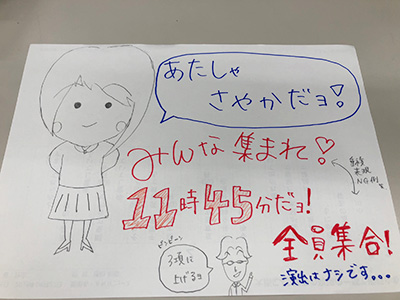 あたしゃ
さやかだョ!
みんな集まれ♡
11時45分だョ!
全員集合!
演出はナシです。。。
ピンピーン
3項に
上げるヨ
表現
NG例